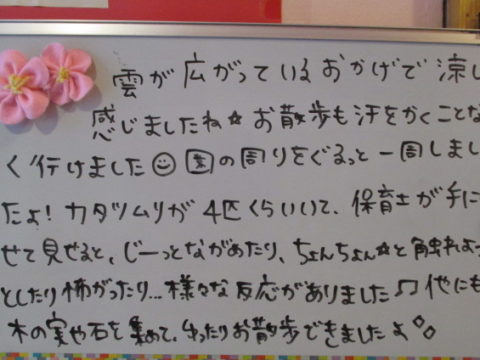 雲が広がっているおかげで涼し
感じましたね☆お散歩も汗をかくことな
く行けました☺園の周りをぐるっと一周しまし
たよ!カタツムリが4匹くらいいて、保育士が手に
せて見せると、じーっとながめたり、ちょんちょん☆と触れよう
としたり怖がったり…様々な反応がありました♫他にも
木の実や石を集めて、ゆったりお散歩できましたよ